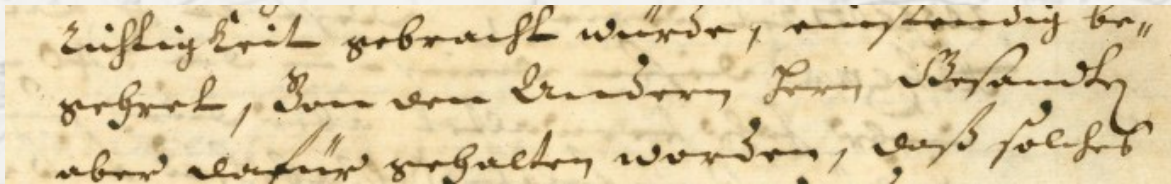 richtigkeit gebracht würde, einstendig be„
gehret, Von den Andern Hern Gesandten
aber dafür gehalten worden, daß solches